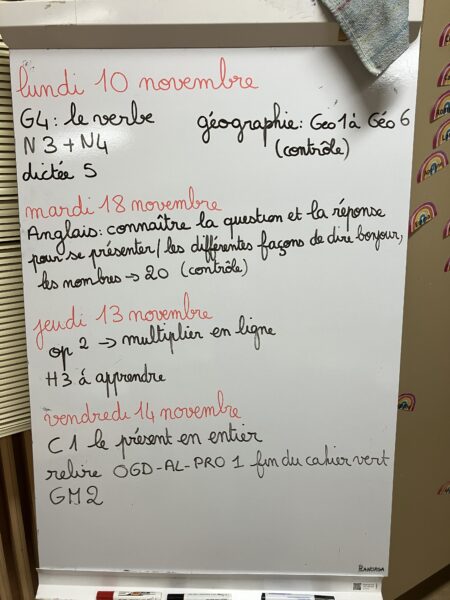 lundi 10 novembre
G4 : le verbe
N3 + N4
dictée 5
géographie : Géo 1 à Géo 6
(contrôle)
mardi 18 novembre
Anglais : connaître la question et la réponse
pour se présenter / les différentes façons de dire bonjour,
les nombres → 20 (contrôle)
jeudi 13 novembre
op 2 → multiplier en ligne
H3 à apprendre
vendredi 14 novembre
C1 le présent en entier
relire OGD-AL-PRO 1 fin du cahier vert
GM2